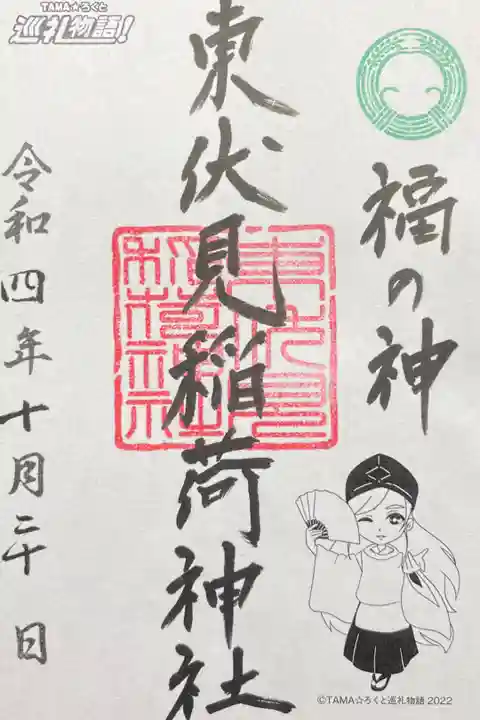 TAMA☆ろくと
巡礼物語!
福の神
東伏見稲荷神社
令和四年十月二十日
©TAMA☆ろくと巡礼物語 2022